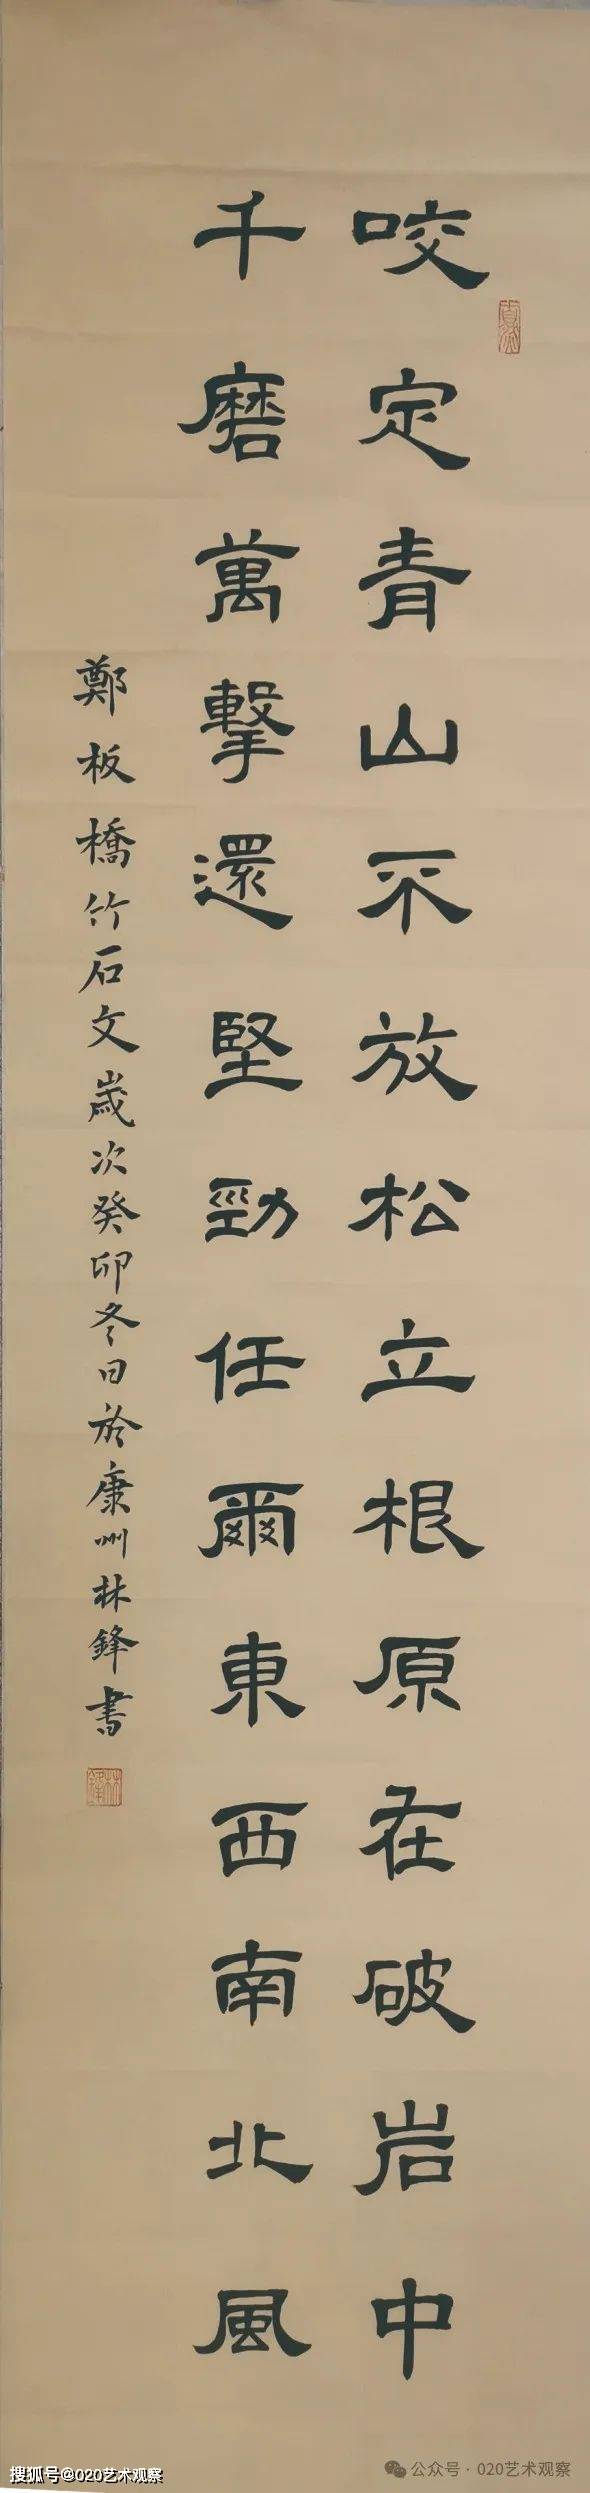 咬定青山不放松立根原在破岩中
千磨萬擊還堅勁任爾東西南北風
鄭板橋竹石文歲次癸卯冬日於康州林鋒書
林鋒
搜狐号@020艺术观察
公众号·020艺术观察